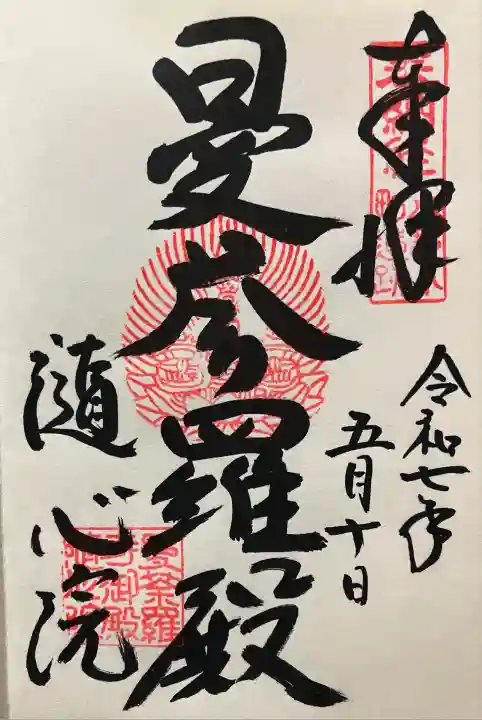 奉拝
令和七年
五月十日
曼荼羅殿
随心院